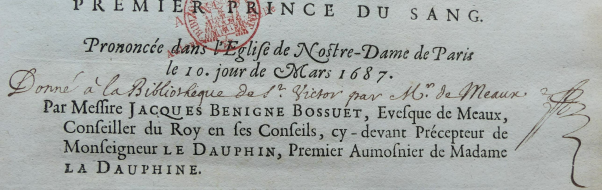 PREMIER PRINCE DU SANG.
Prononcée dans l'Eglise de Nostre-Dame de Paris
le 10. jour de Mars 1687.
Donné à la Bibliotheque de St. Victor par Mr. de Meaux
Par Messire JACQUES BENIGNE BOSSUET, Evesque de Meaux,
Conseiller du Roy en ses Conseils, cy-devant Précepteur de
Monseigneur LE DAUPHIN, Premier Aumosnier de Madame
LA DAUPHINE.